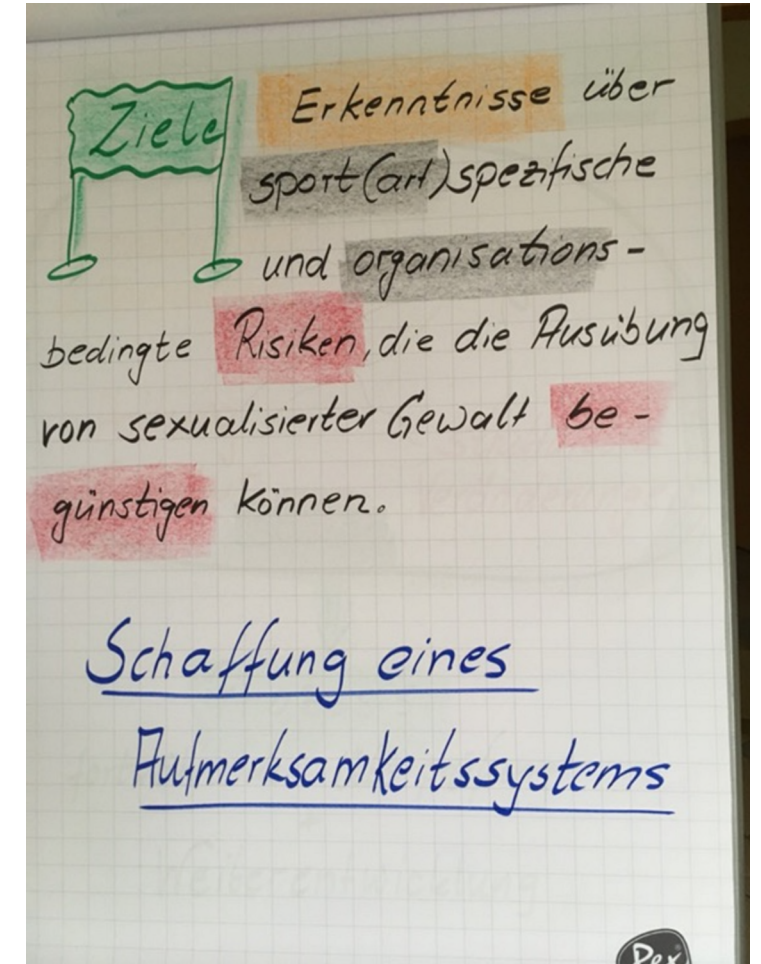 Ziele
Erkenntnisse über
sport(art)spezifische
und organisations-
bedingte Risiken, die die Ausübung
von sexualisierter Gewalt be-
günstigen können.
Schaffung eines
Aufmerksamkeitssystems
Weiterentwicklung
Der